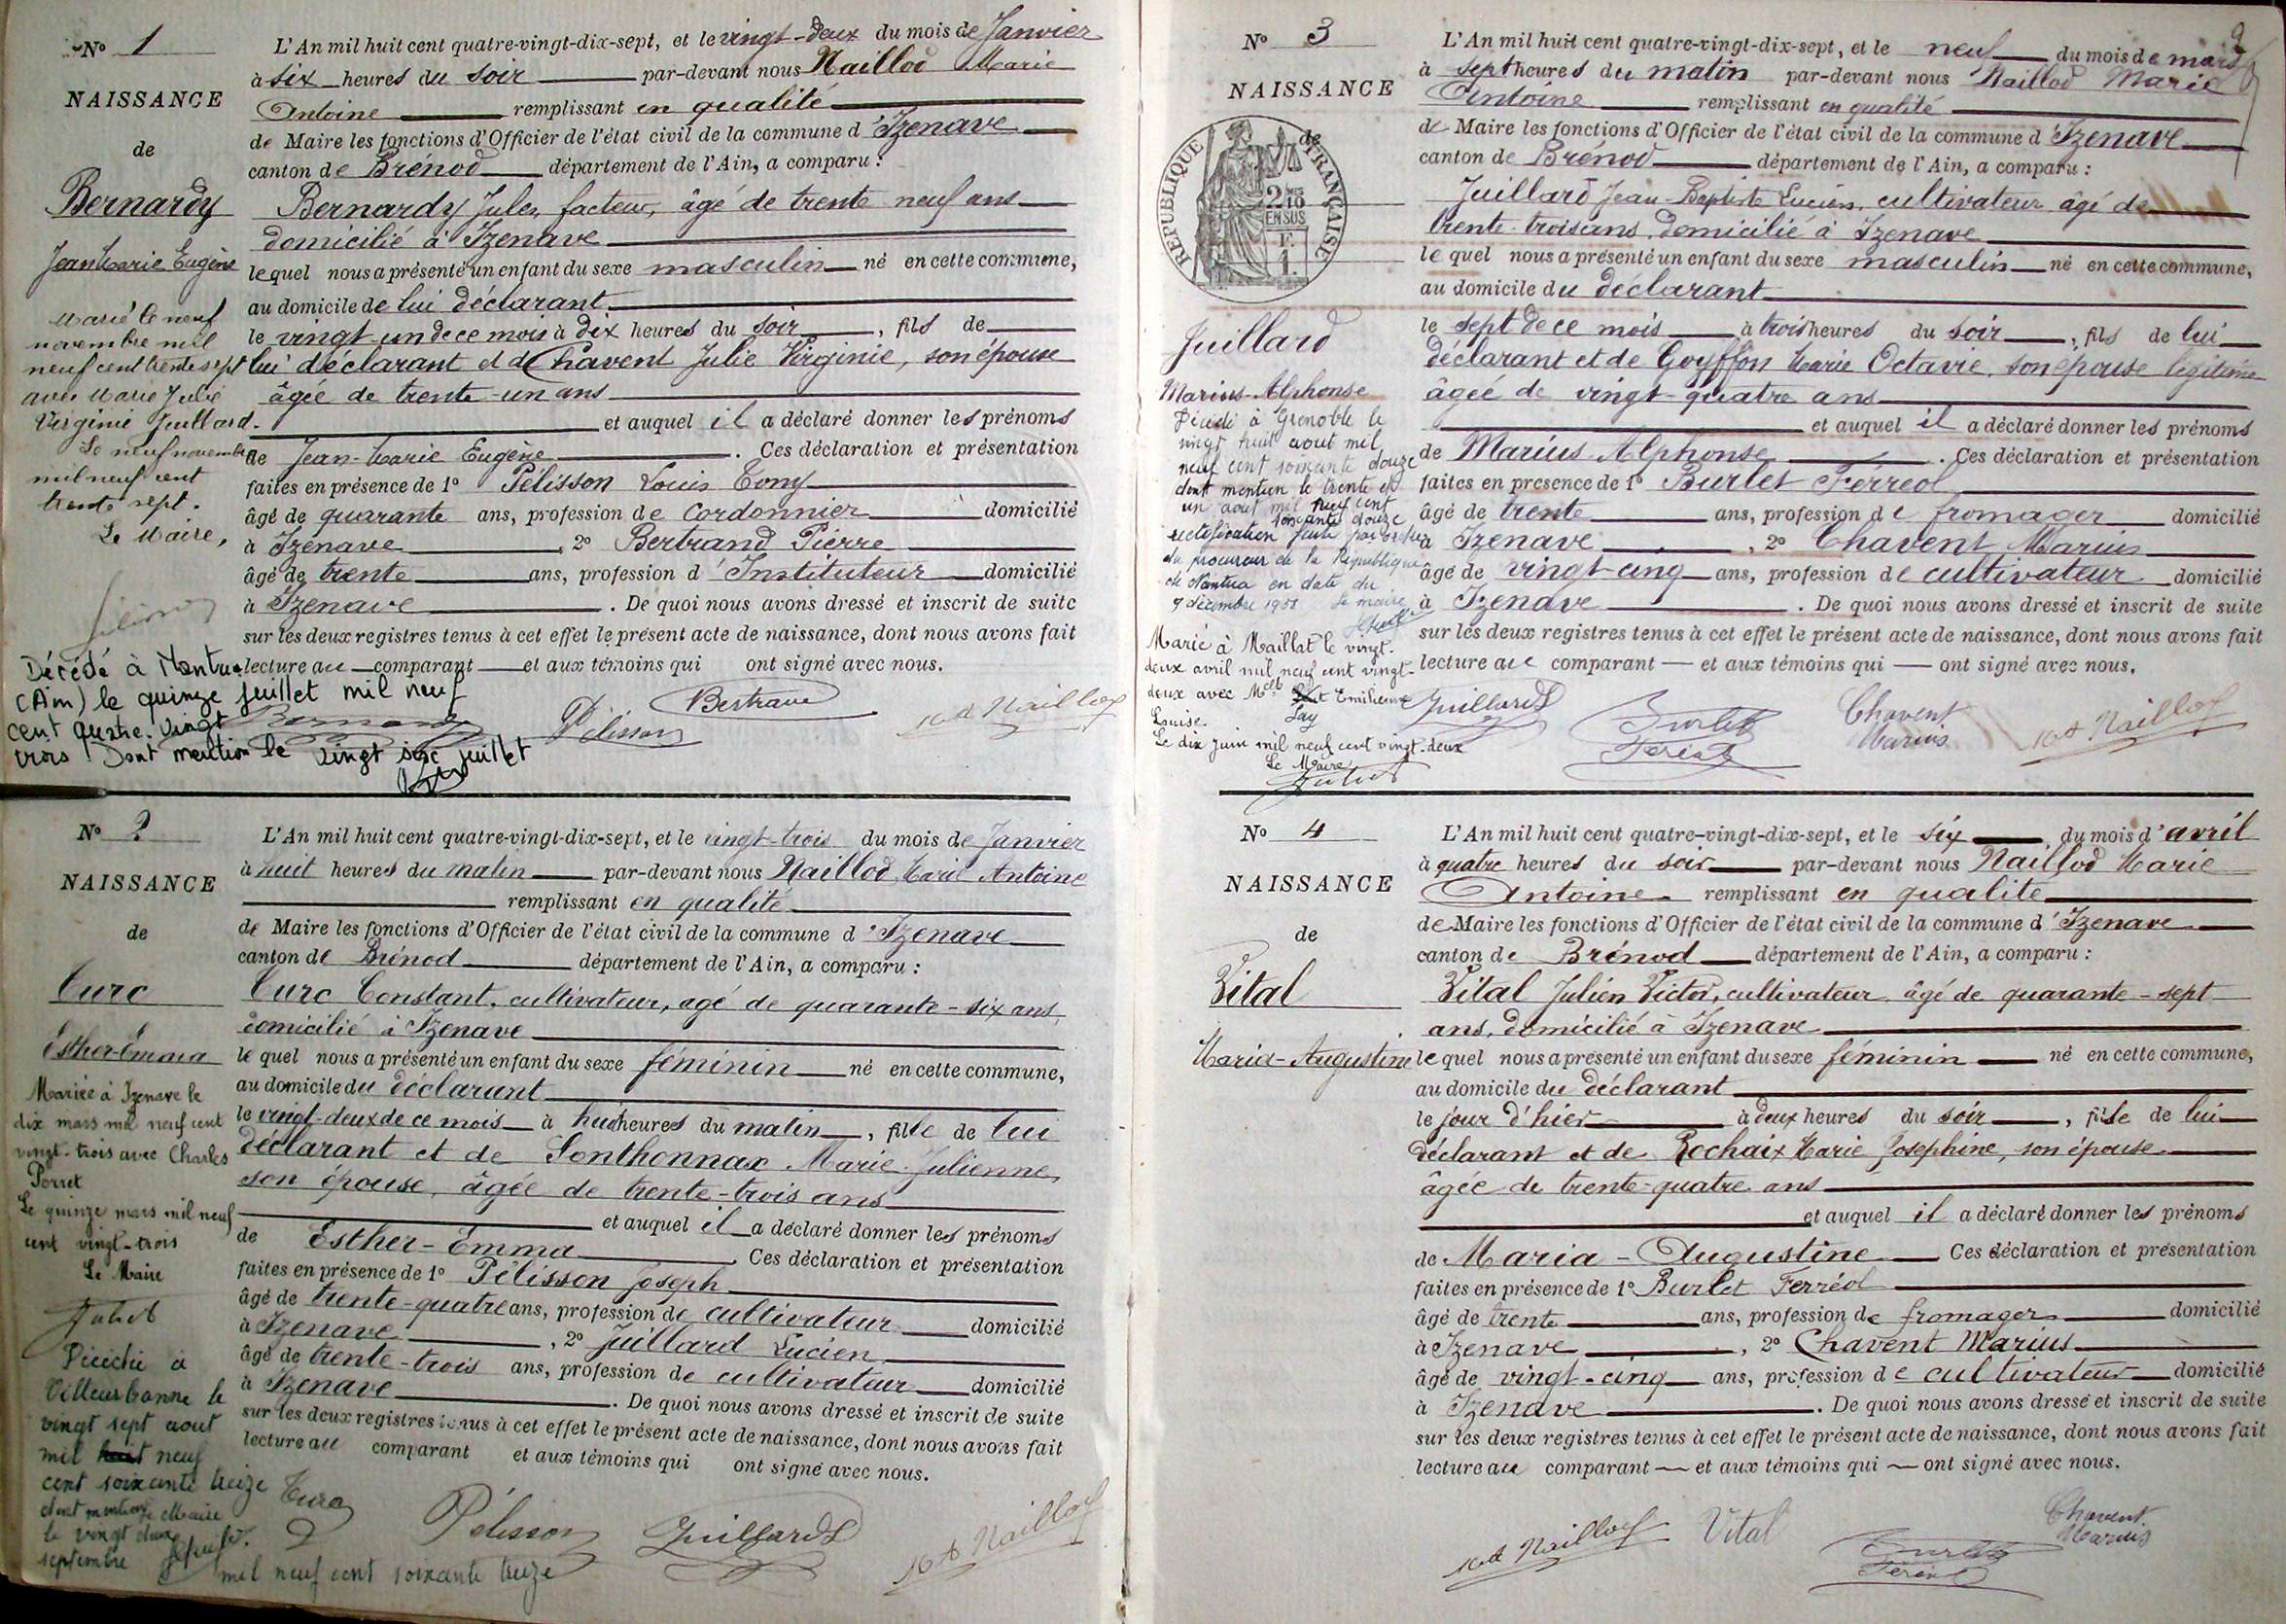 N° 1
NAISSANCE
de
Bernardy
Jean Marie Eugène
Marié le neuf
novembre mil
neuf cent trente sept
avec Marie Julie
Virginie Juillard.
Le neuf novembre
mil neuf cent
trente sept.
Le Maire,
L'An mil huit cent quatre-vingt-dix-sept, et le vingt-deux du mois de Janvier
à six heures du soir par-devant nous Naillod Marie
Antoine remplissant en qualité
de Maire les fonctions d'Officier de l'état civil de la commune d'Izenave
canton de Brénod département de l'Ain, a comparu :
Bernardy Jules, facteur, âgé de trente neuf ans
domicilié à Izenave
lequel nous a présenté un enfant du sexe masculin né en cette commune,
au domicile de lui déclarant
le vingt-un de ce mois à dix heures du soir, fils de
lui déclarant et de Chavent Julie Virginie, son épouse
âgée de trente-un ans
et auquel il a déclaré donner les prénoms
de Jean-Marie Eugène. Ces déclaration et présentation
faites en présence de 1° Pélisson Louis Tony
âgé de quarante ans, profession de cordonnier domicilié
à Izenave, 2° Bertrand Pierre
âgé de trente ans, profession d'Instituteur domicilié
à Izenave. De quoi nous avons dressé et inscrit de suite
sur les deux registres tenus à cet effet le présent acte de naissance, dont nous avons fait
lecture au comparant et aux témoins qui ont signé avec nous.
Décédé à Nantua
(Ain) le quinze juillet mil neuf
cent quatre-vingt
trois Dont mention le vingt six juillet
Bernardy Pélisson Bertrand Naillod
N° 2
NAISSANCE
de
Curc
Esther-Emma
Mariée à Izenave le
dix mars mil neuf cent
vingt-trois avec Charles
Porret
Le quinze mars mil neuf
cent vingt-trois
Le Maire
Décédée à
Villeurbanne le
vingt sept aout
mil huit neuf
cent soixante treize
dont mention
le vingt deux
septembre
mil neuf cent soixante treize
L'An mil huit cent quatre-vingt-dix-sept, et le vingt-trois du mois de Janvier
à huit heures du matin par-devant nous Naillod Marie Antoine
remplissant en qualité
de Maire les fonctions d'Officier de l'état civil de la commune d'Izenave
canton de Brénod département de l'Ain, a comparu :
Curc Constant, cultivateur, agé de quarante-six ans
domicilié à Izenave
lequel nous a présenté un enfant du sexe féminin né en cette commune,
au domicile du déclarant
le vingt-deux de ce mois à huit heures du matin, fille de lui
déclarant et de Sonthonnax Marie Julienne
son épouse, âgée de trente-trois ans
et auquel il a déclaré donner les prénoms
de Esther-Emma Ces déclaration et présentation
faites en présence de 1° Pélisson Joseph
âgé de trente-quatre ans, profession de cultivateur domicilié
à Izenave, 2° Juillard Lucien
âgé de trente-trois ans, profession de cultivateur domicilié
à Izenave. De quoi nous avons dressé et inscrit de suite
sur les deux registres tenus à cet effet le présent acte de naissance, dont nous avons fait
lecture au comparant et aux témoins qui ont signé avec nous.
Curc Pélisson Juillard Naillod
2
N° 3
NAISSANCE
de
RÉPUBLIQUE FRANÇAISE
2/10 EN SUS
Juillard
Marius-Alphonse
Décédé à Grenoble le
vingt huit aout mil
neuf cent soixante douze
dont mention le trente et
un aout mil neuf cent
soixante douze
rectification faite par ordre
du procureur de la République
de Nantua en date du
Le maire
Marié à Maillat le vingt-
deux avril mil neuf cent vingt-
deux avec Melle Emilienne
Louise.
Le dix juin mil neuf cent vingt-deux
Le Maire
L'An mil huit cent quatre-vingt-dix-sept, et le neuf du mois de mars
à sept heures du matin par-devant nous Naillod Marie
Antoine remplissant en qualité
de Maire les fonctions d'Officier de l'état civil de la commune d'Izenave
canton de Brénod département de l'Ain, a comparu :
Juillard Jean-Baptiste Lucien, cultivateur âgé de
trente-trois ans, domicilié à Izenave
lequel nous a présenté un enfant du sexe masculin né en cette commune,
au domicile du déclarant
le sept de ce mois à trois heures du soir, fils de lui
déclarant et de Goyffon Marie Octavie, son épouse légitime
âgée de vingt-quatre ans
et auquel il a déclaré donner les prénoms
de Marius Alphonse. Ces déclaration et présentation
faites en présence de 1° Burlet Ferréol
âgé de trente ans, profession de fromager domicilié
à Izenave, 2° Chavent Marius
âgé de vingt-cinq ans, profession de cultivateur domicilié
à Izenave. De quoi nous avons dressé et inscrit de suite
sur les deux registres tenus à cet effet le présent acte de naissance, dont nous avons fait
lecture au comparant et aux témoins qui ont signé avec nous.
Juillard Burlet Chavent Naillod
Ferréol Marius
N° 4
NAISSANCE
de
Vital
Maria-Augustine
L'An mil huit cent quatre-vingt-dix-sept, et le six du mois d'avril
à quatre heures du soir par-devant nous Naillod Marie
Antoine remplissant en qualité
de Maire les fonctions d'Officier de l'état civil de la commune d'Izenave
canton de Brénod département de l'Ain, a comparu :
Vital Julien Victor, cultivateur, âgé de quarante-sept
ans, domicilié à Izenave
lequel nous a présenté un enfant du sexe féminin né en cette commune,
au domicile du déclarant
le jour d'hier à deux heures du soir, fille de lui
déclarant et de Rochaix Marie Josephine, son épouse
âgée de trente-quatre ans
et auquel il a déclaré donner les prénoms
de Maria-Augustine Ces déclaration et présentation
faites en présence de 1° Burlet Ferréol
âgé de trente ans, profession de fromager domicilié
à Izenave, 2° Chavent Marius
âgé de vingt-cinq ans, profession de cultivateur domicilié
à Izenave. De quoi nous avons dressé et inscrit de suite
sur les deux registres tenus à cet effet le présent acte de naissance, dont nous avons fait
lecture au comparant et aux témoins qui ont signé avec nous.
Naillod Vital Burlet Chavent
Ferréol Marius